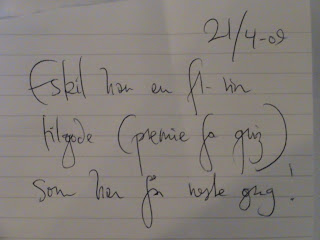 21/4-09
Eskil har en fl- vin
tilgode (premie fra quiz)
som han får neste gang!